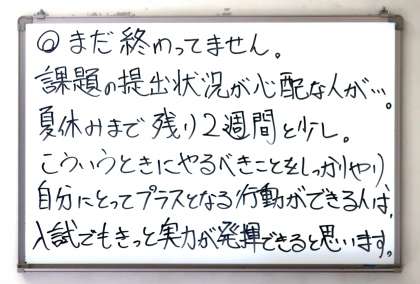 ◎まだ終わってません。
課題の提出状況が心配な人が…。
夏休みまで残り2週間と少し。
こういうときにやるべきことをしっかりやり
自分にとってプラスとなる行動ができる人は、
入試でもきっと実力が発揮できると思います。